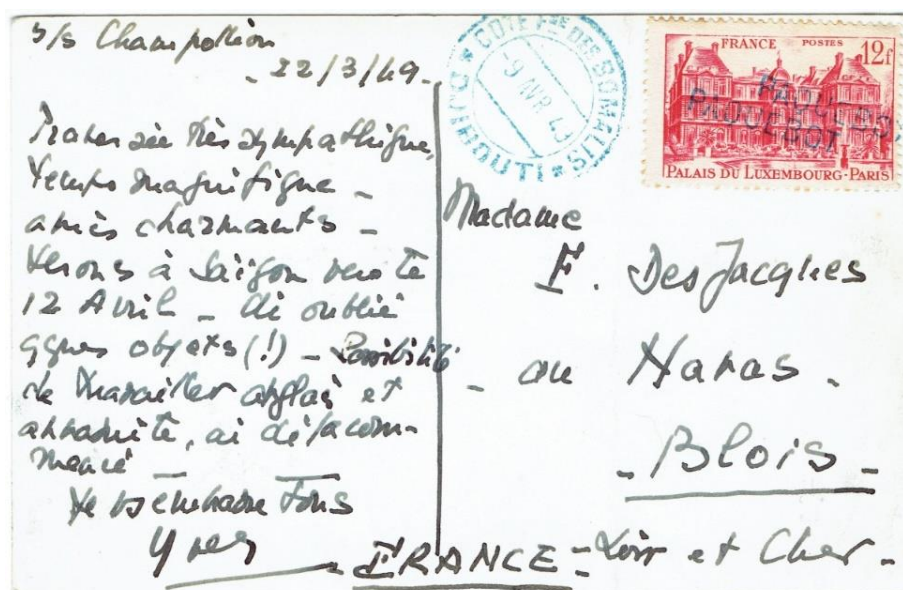 s/s Champollion
- 22/3/49 -
Traversée très sympathique,
temps magnifique -
amis charmants -
serons à Saïgon vers le
12 Avril - Ai oublié
qques objets (!) - Possibilité
de travailler anglais et
annamite, ai déjà com-
mencé -
Je vs embrasse tous
Yves
DJIBOUTI * COTE FSE DES SOMALIS *
-9 AVR 49
FRANCE POSTES 12f
PAQUEBOT
PALAIS DU LUXEMBOURG-PARIS
Madame
F. DesJacques
- au Haras -
- Blois -
FRANCE - Loir et Cher -